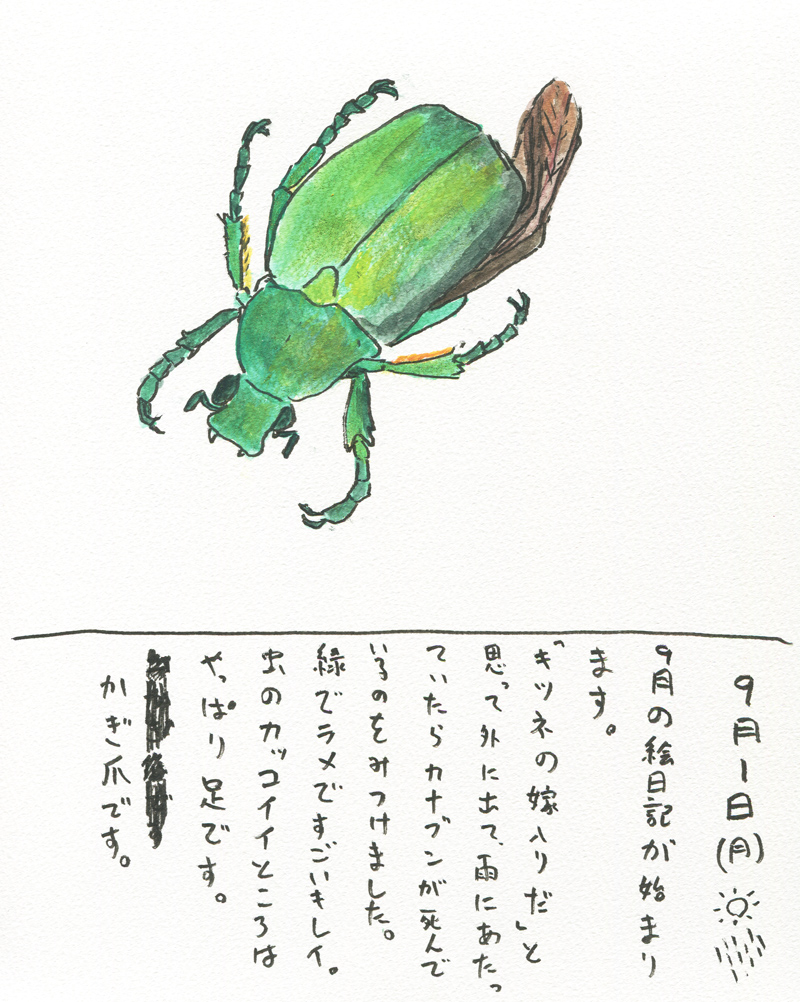 9月1日(月)
9月の絵日記が始まり
ます。
「キツネの嫁入りだ」と
思って外に出て、雨にあたっ
ていたらカナブンが死んで
いるのをみつけました。
緑でラメですごいキレイ。
虫のカッコイイところは
やっぱり足です。
かぎ爪です。